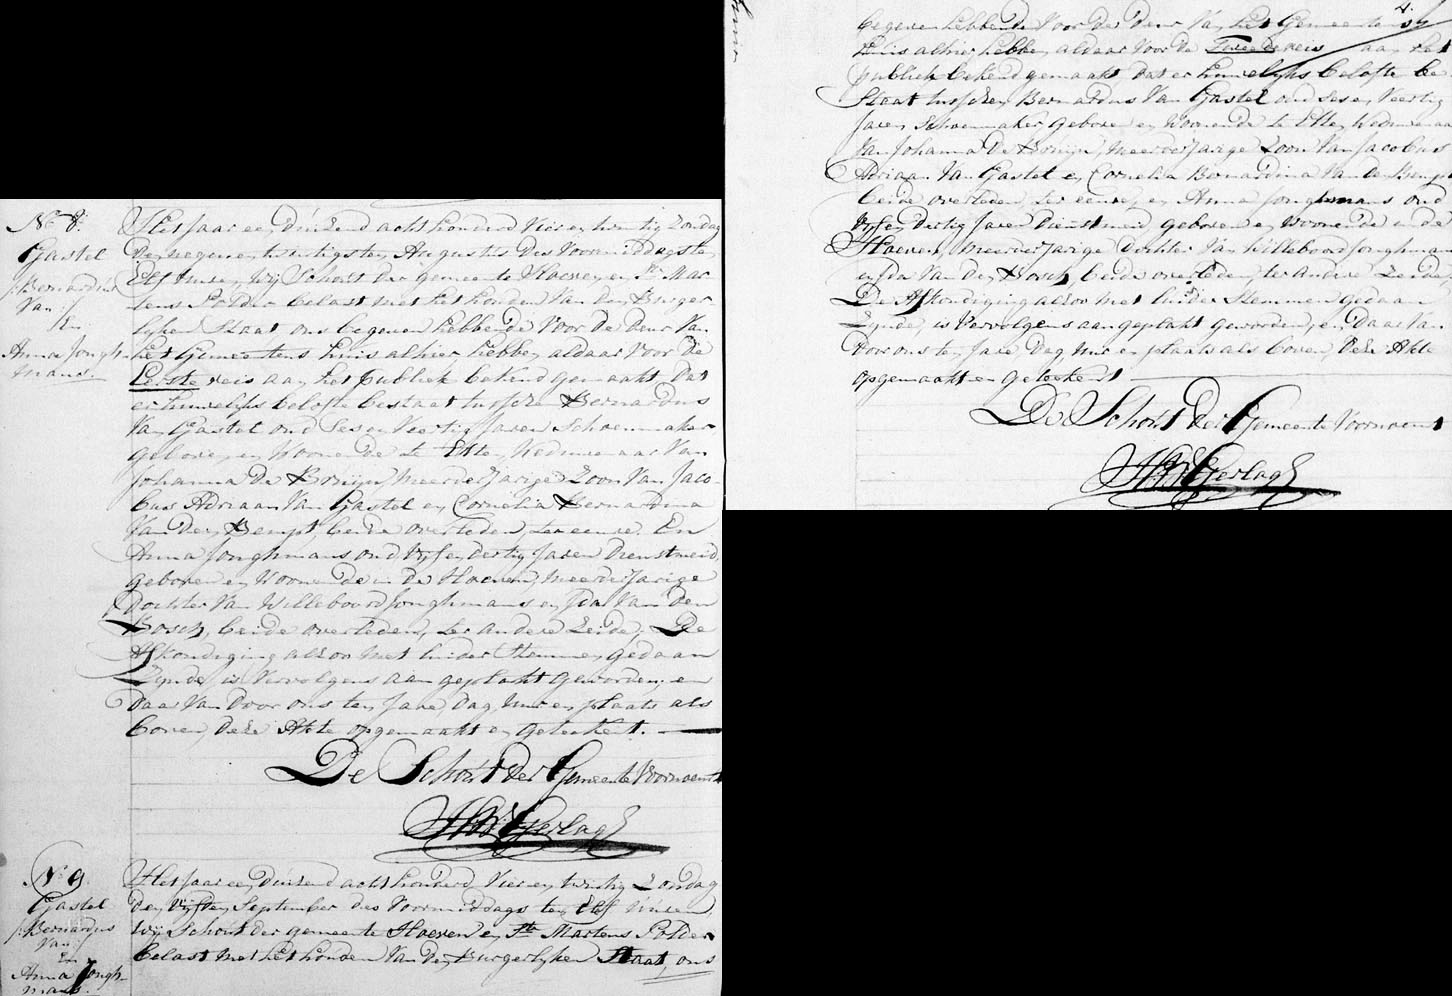 No 8.
Gastel
/:Bernardus
Van:/
En
Anna Jongh-
mans.
Het Jaar een Duizend acht honderd Vier en twintig Zondag
den negen en twintigsten Augustus des Voormiddags te
Elf Uuren, Wij Schout der gemeente Hoeven en St. Mar
tens Polder belast met het houden Van den Burger
lijken Staat ons begeven hebbende Voor de deur Van
het Gemeentens huis alhier hebben aldaar Voor de
Eerste reis aan het publiek bekend gemaakt, dat
er huwelijks belofte bestaat tusschen Bernardus
Van Gastel oud Ses en Veertig Jaren Schoenmaker
geboren en Woonende te Etten, Weduwenaar Van
Johanna De Bruijn, Meerderjarige Zoon Van Jaco-
bus Adriaan Van Gastel en Cornelia Bernardina
Van den Bempt, beide overleden, ter eenre. En
Anna Jonghmans oud Vijf en dertig Jaren Dienstmeid,
geboren en Woonende in de Hoeven, Meerderjarige
dochter Van Willeboord Jonghmans en Ida Van den
Bosch, beide overleden, ter andere Zeide. De
Afkondiging alzoo met luider Stemmen gedaan
Zijnde, is Vervolgens aangeplakt geworden; en
daar Van door ons ten Jare, dag, Uur en plaats als
boven, deze Akte opgemaakt en geteekent.
De Schout der Gemeente Voornoemt
No 9.
Gastel
/:Bernardus
Van:/
En
Anna Jongh-
mans.
Het Jaar een Duizend acht honderd Vier en twintig Zondag
den Vijfden September des Voormiddags ten Elf Uuren,
Wij Schout der gemeente Hoeven en St. Martens Polder
belast met het houden Van den Burgerlyken Staat, ons
4.
begeven hebbende Voor de deur Van het Gemeentens
huis alhier hebben aldaar Voor de Tweede reis aan het
publiek bekend gemaakt, dat er huwelijks belofte be
Staat tusschen Bernardus Van Gastel oud ses en Veertig
Jaren Schoenmaker, geboren en Woonende te Etten, Weduwenaar
Van Johanna De Bruijn, Meerderjarige Zoon Van Jacobus
Adriaan Van Gastel en Cornelia Bernardina Van den Bempt
beide overleden, ter eenre, en Anna Jonghmans oud
Vijf en dertig Jaren Dienstmeid geboren en Woonende in de
Hoeven, Meerderjarige Dochter Van Willeboord Jonghmans
en Ida Van den Bosch, beide overleden, ter andere Zeide,
De Afkondiging alzoo met luider Stemmen gedaan
Zijnde, is Vervolgens aangeplakt geworden, en daar Van
door ons ten Jare, Dag, Uur en plaats als boven, deze Akte
opgemaakt en geteekent
De Schout der Gemeente Voornoemt